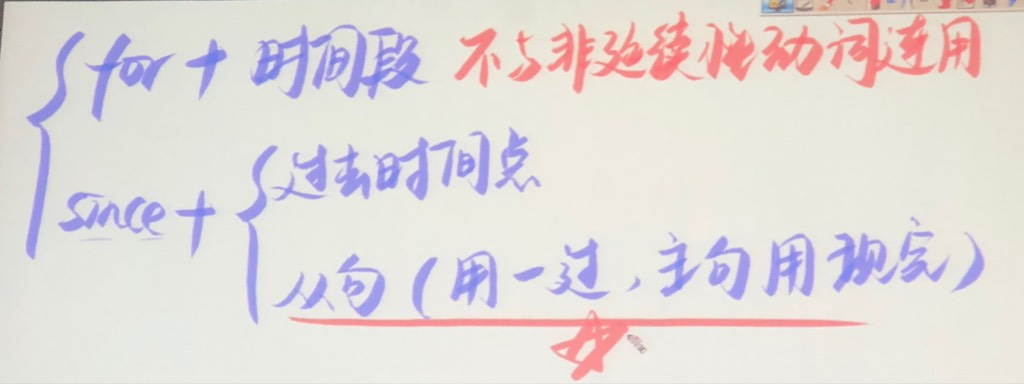 for + 时间段 不与非延续性动词连用
since + { 过去时间点
从句（用一过，主句用现完）